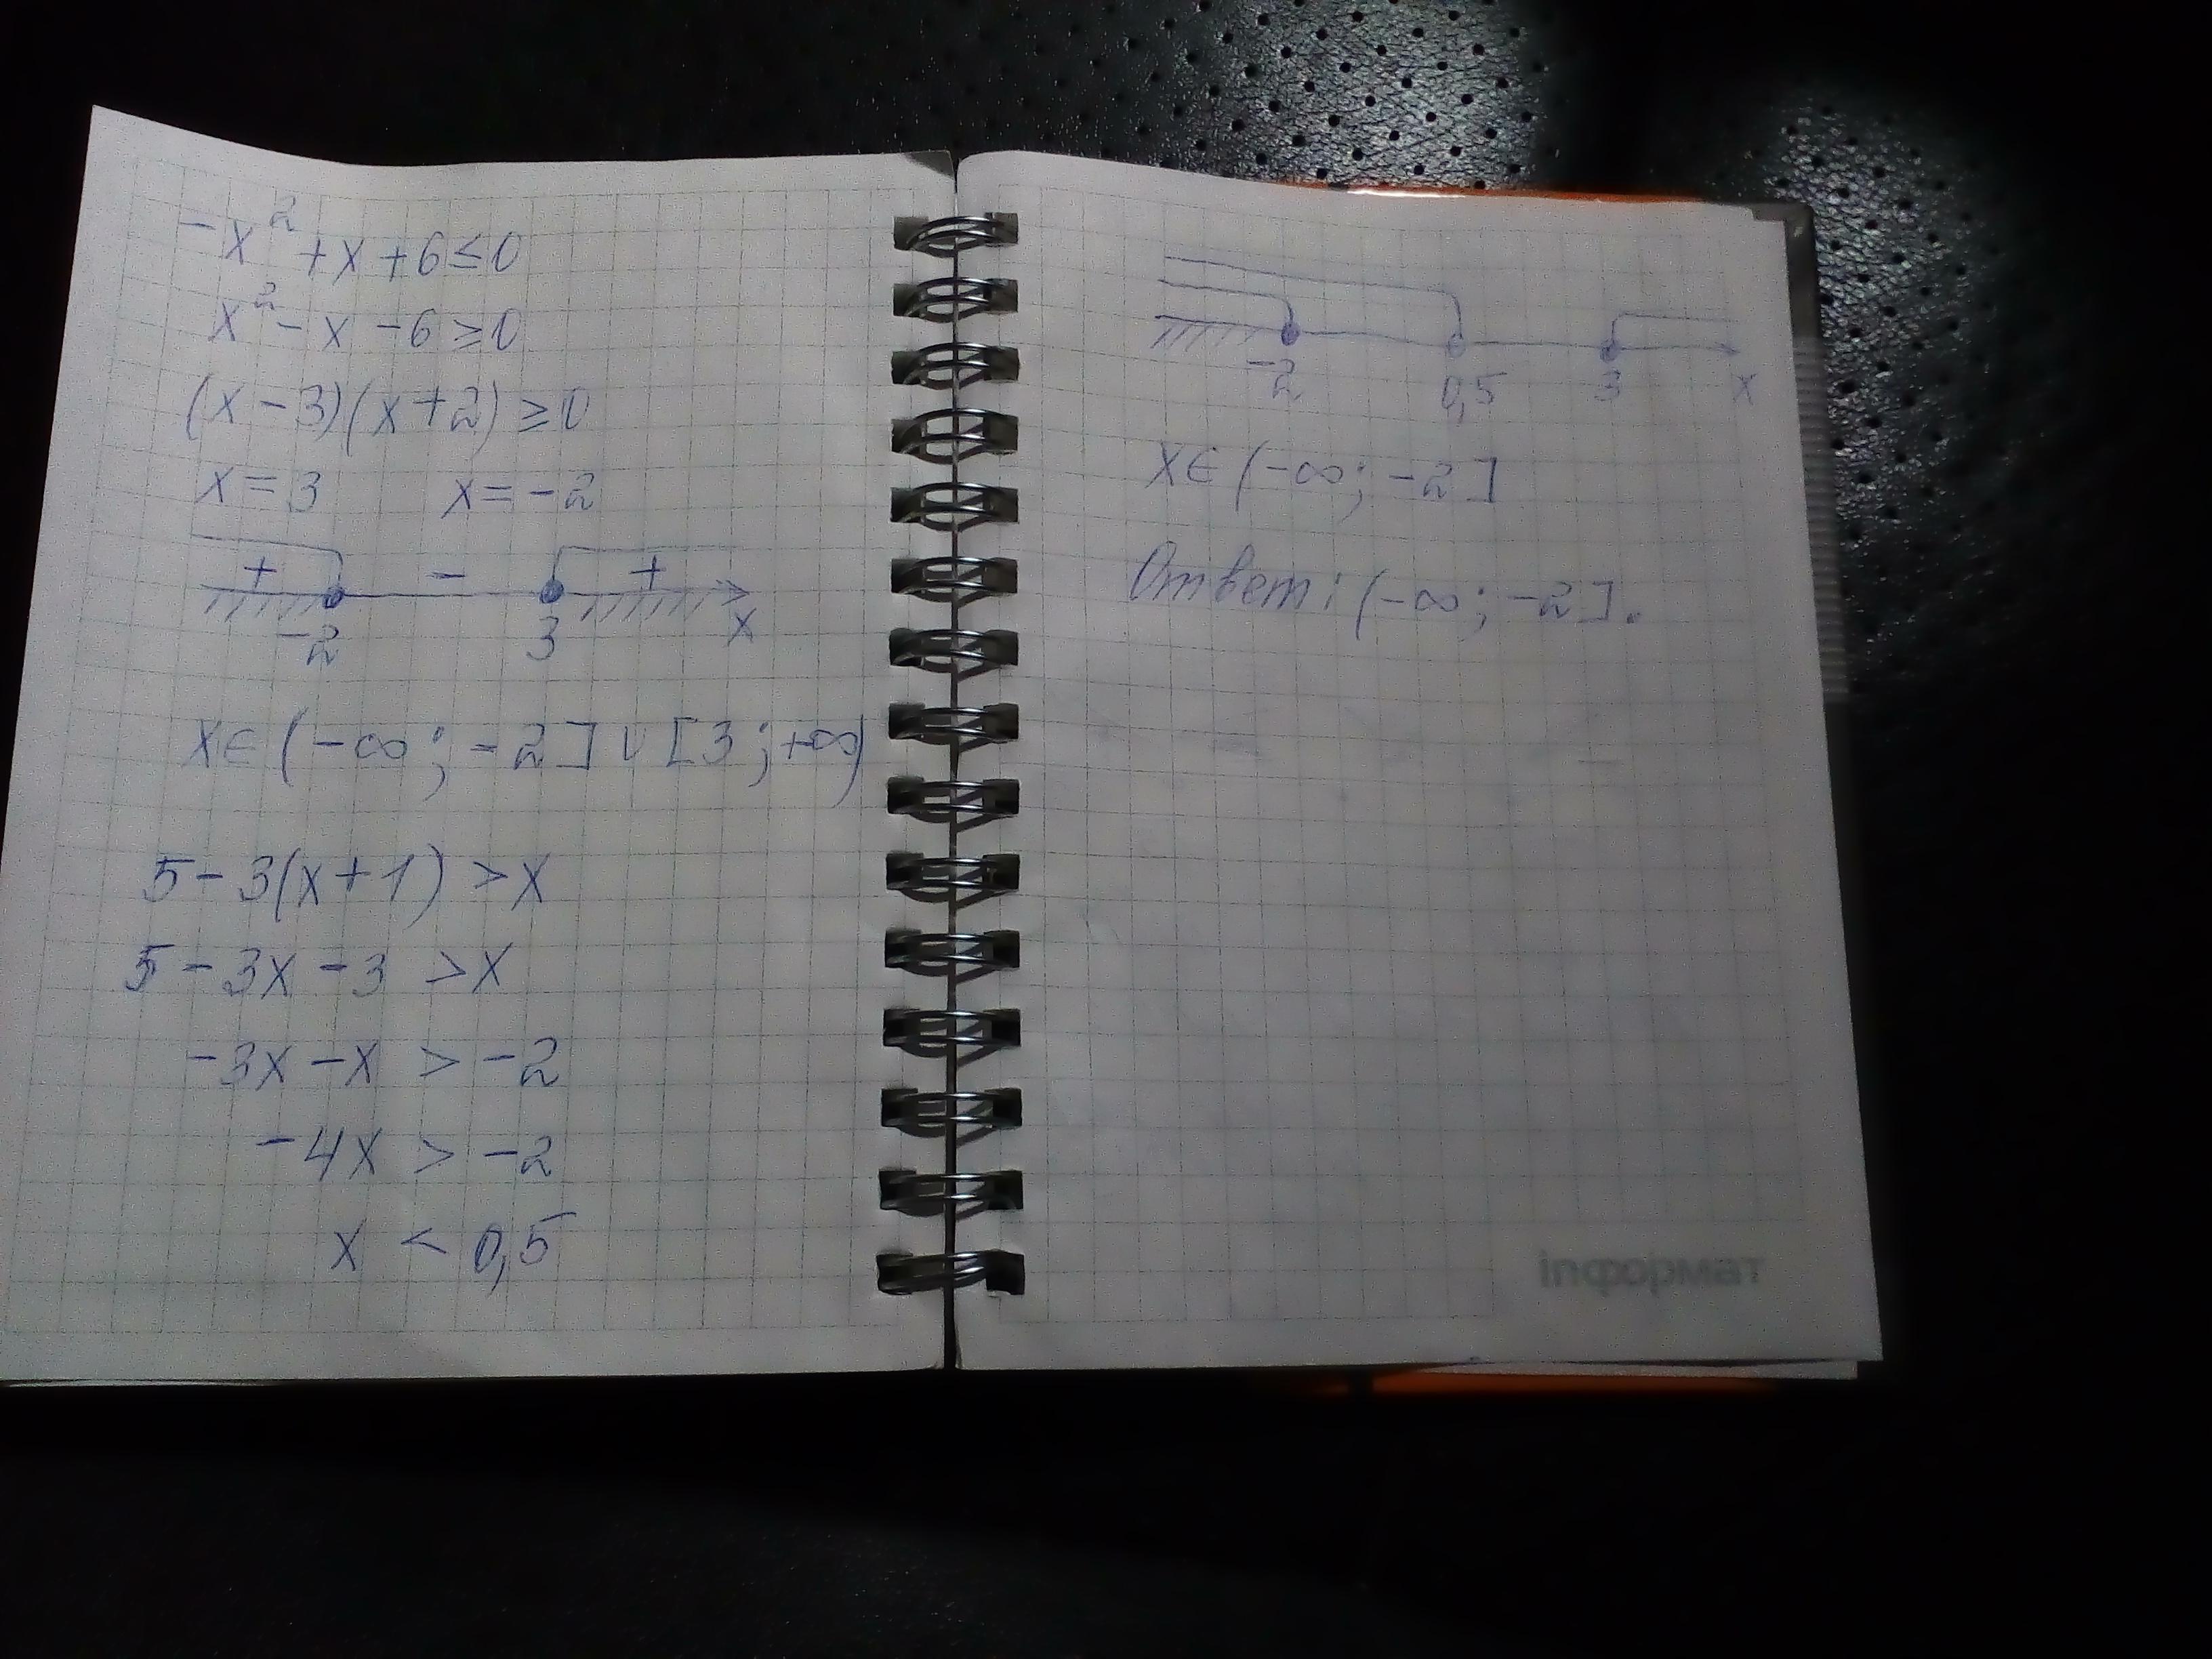 -x² + x + 6 ≤ 0
x² - x - 6 ≥ 0
(x - 3)(x + 2) ≥ 0
x = 3 x = -2
+ - +
-2 3 x
x ∈ (-∞; -2] ∪ [3; +∞)
5 - 3(x + 1) > x
5 - 3x - 3 > x
-3x - x > -2
-4x > -2
x < 0,5
-2 0,5 3 x
x ∈ (-∞; -2]
Ответ: (-∞; -2].
inформат